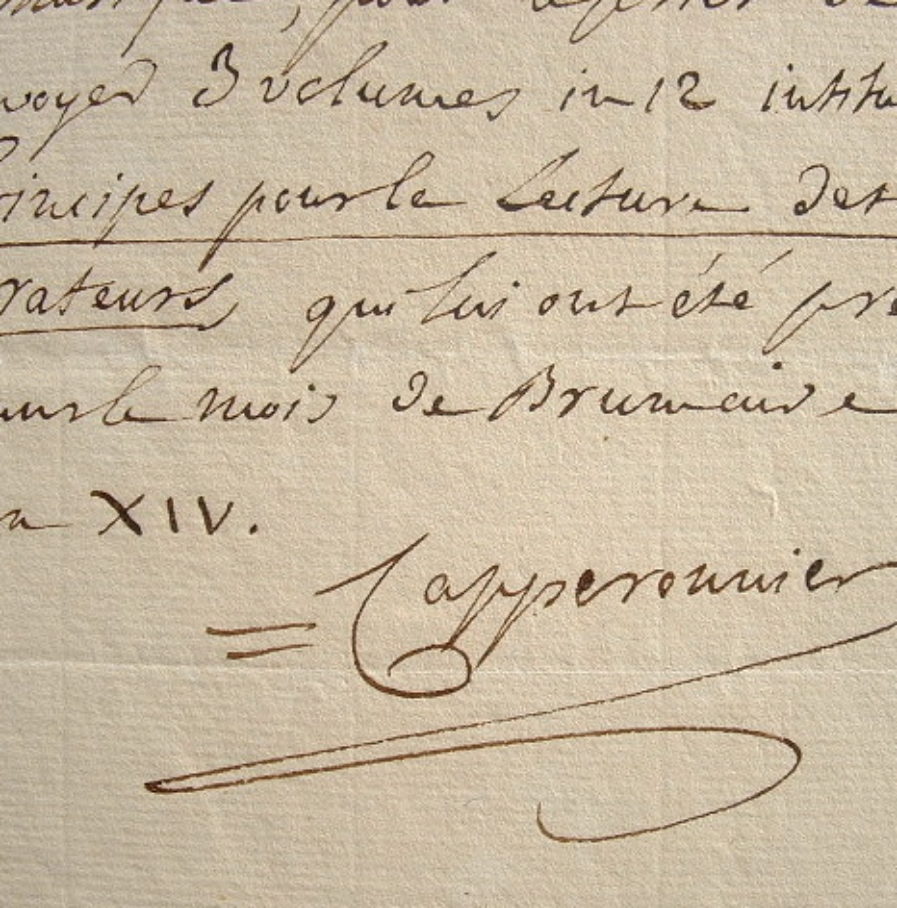 pour
voyer 3 volumes in 12 intitu
rincipes pour la Lecture des
rateurs qui lui ont été pre
our le mois de Brumaire
an XIV.
= Capperonnier